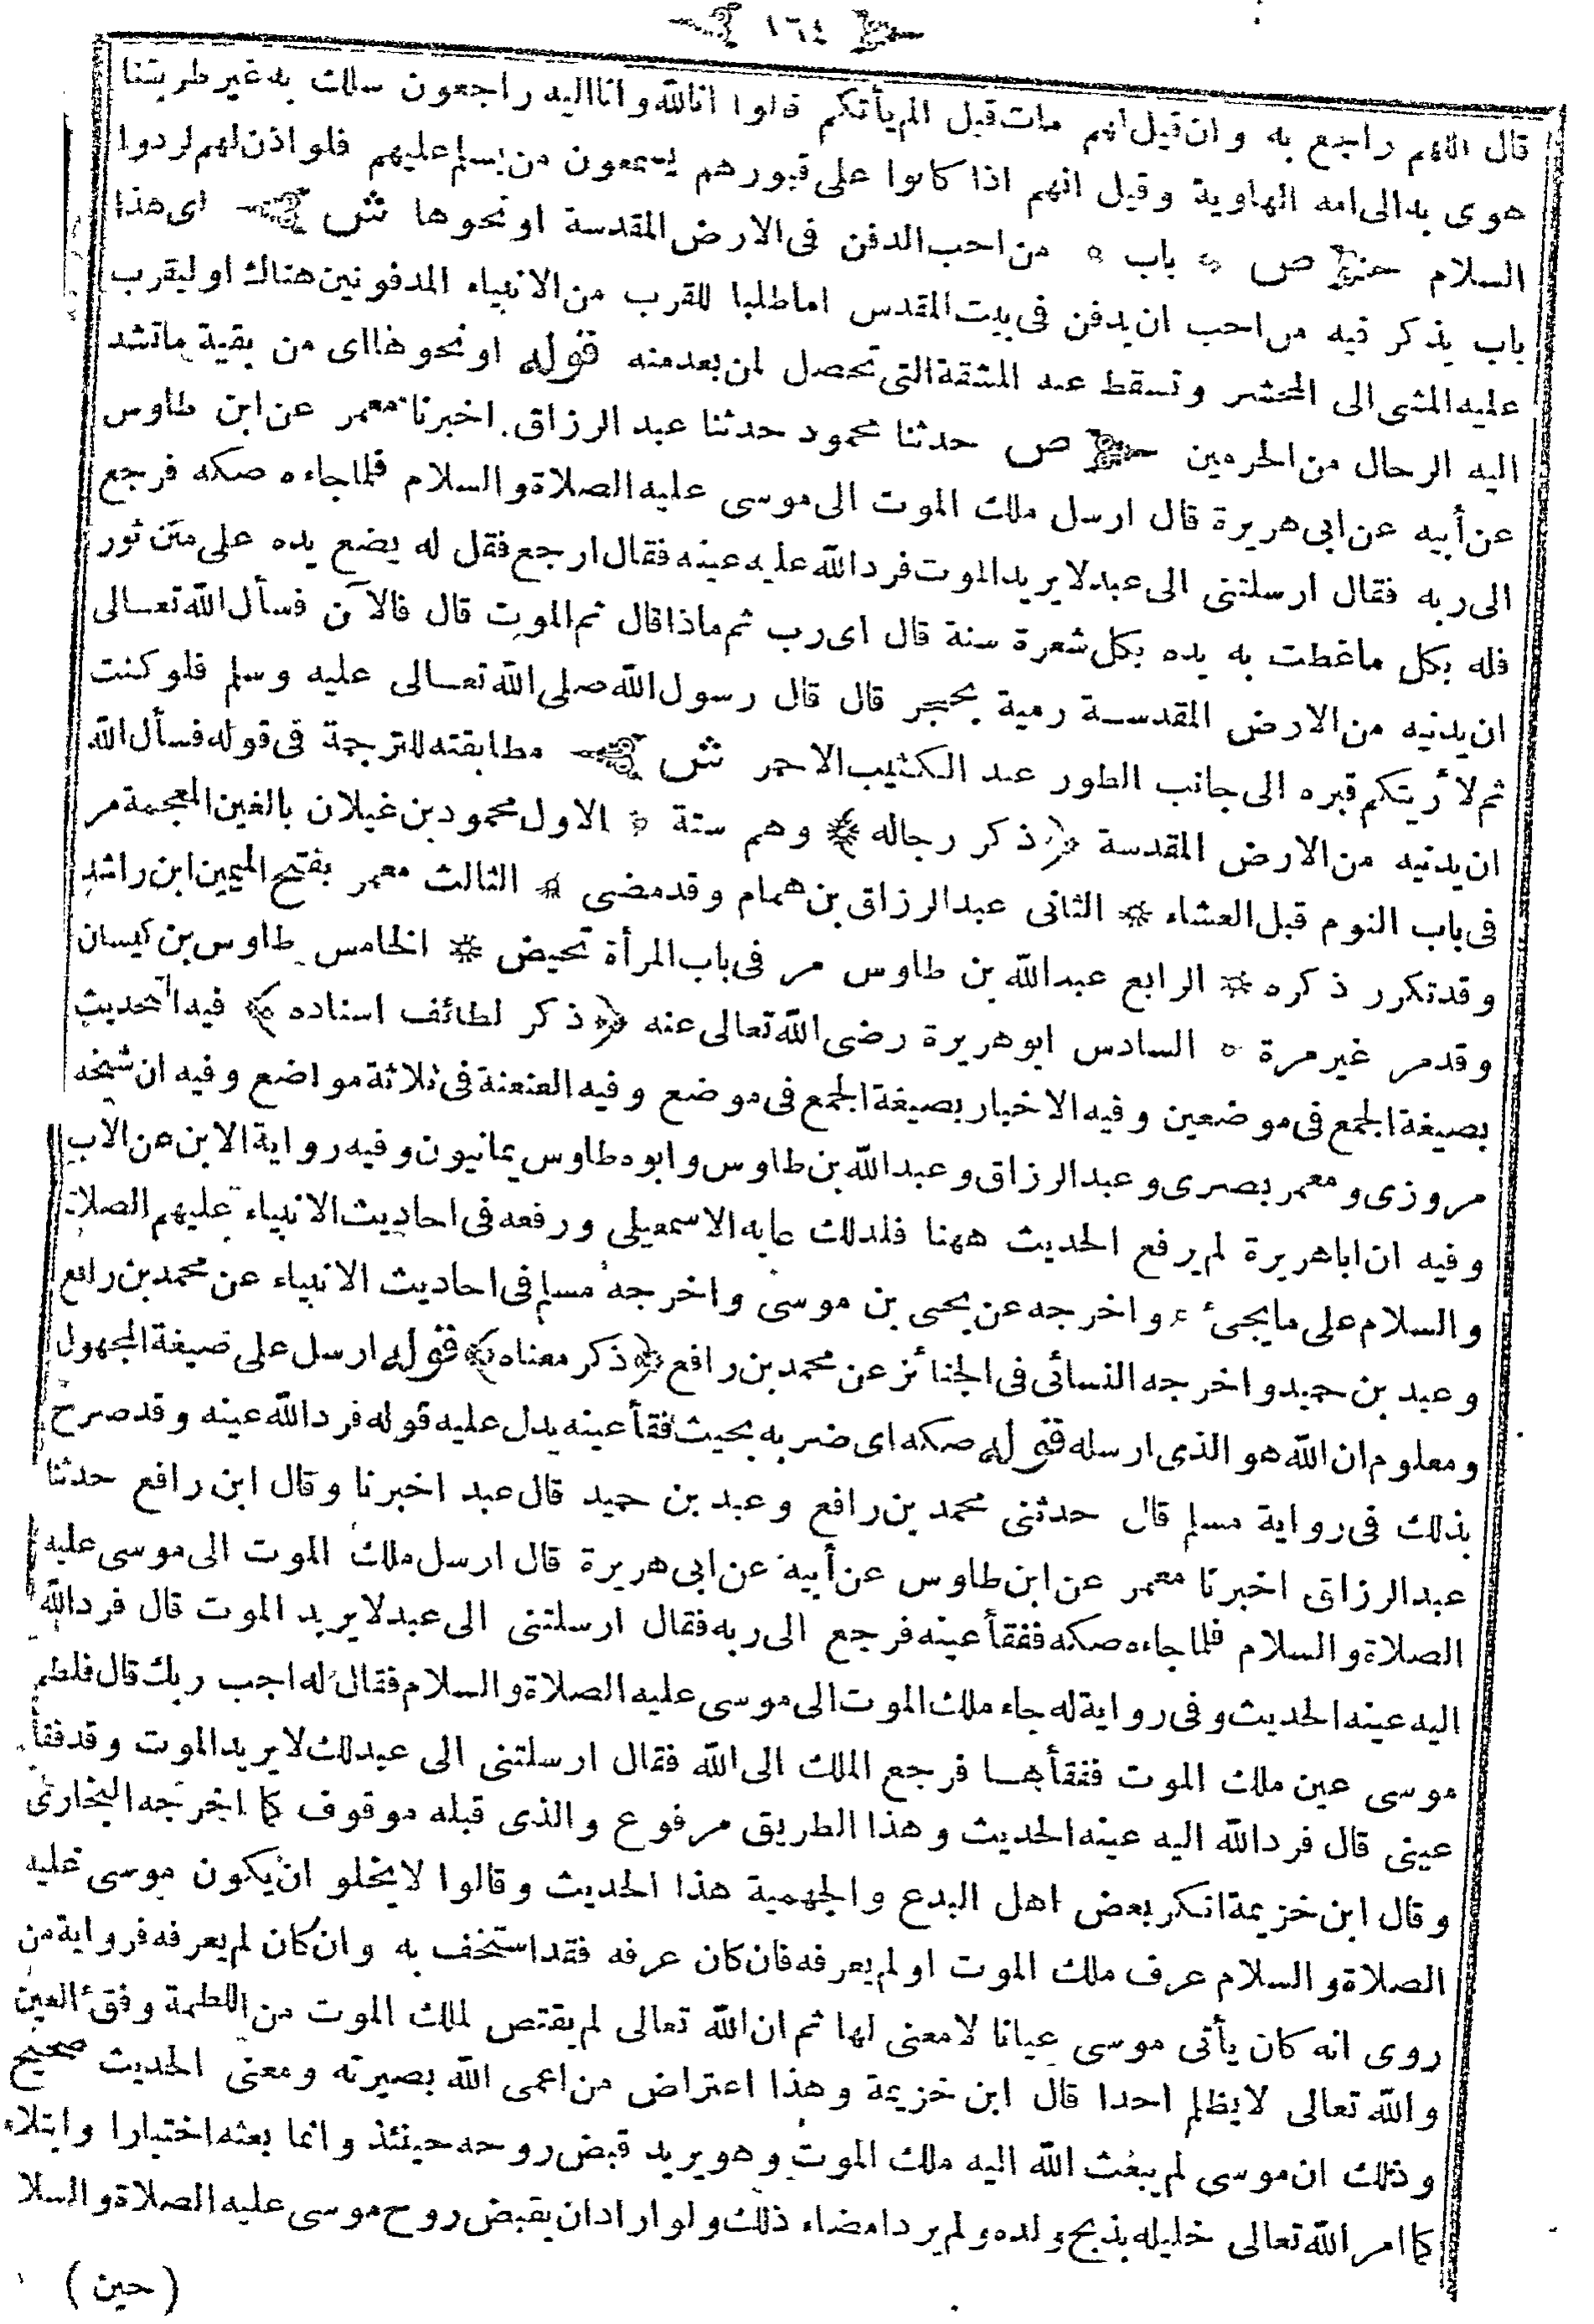 ١٦٤
قال اللهم راجع به وان قيل لهم مات قيل الم يأتكم قالوا انا لله وانا اليه راجعون سلك به غير طريقنا
هوى به الى امه الهاوية وقيل انهم اذا كانوا على قبورهم يسمعون من يسلم عليهم فلو اذن لهم لردوا
السلام ص باب من احب الدفن فى الارض المقدسة او نحوها ش اى هذا
باب يذكر فيه من احب ان يدفن فى بيت المقدس اما طلبا للقرب من الانبياء المدفونين هناك او ليقرب
عليه المشى الى المحشر وتسقط عنه المشقة التى تحصل لمن بعد منه قوله او نحوها اى من بقية ما تشد
اليه الرحال من الحرمين ص حدثنا محمود حدثنا عبد الرزاق اخبرنا معمر عن ابن طاوس
عن أبيه عن ابى هريرة قال ارسل ملك الموت الى موسى عليه الصلاة والسلام فلما جاءه صكه فرجع
الى ربه فقال ارسلتنى الى عبد لا يريد الموت فرد الله عليه عينه فقال ارجع فقل له يضع يده على متن ثور
فله بكل ما غطت به يده بكل شعرة سنة قال اى رب ثم ماذا قال ثم الموت قال فالآن فسأل الله تعالى
ان يدنيه من الارض المقدسة رمية بحجر قال قال رسول الله صلى الله تعالى عليه وسلم فلو كنت
ثم لأريتكم قبره الى جانب الطور عند الكثيب الاحمر ش مطابقته للترجمة فى قوله فسأل الله
ان يدنيه من الارض المقدسة ﴿ ذكر رجاله ﴾ وهم ستة الاول محمود بن غيلان بالغين المعجمة مر
فى باب النوم قبل العشاء * الثانى عبد الرزاق بن همام وقد مضى * الثالث معمر بفتح الميمين ابن راشد
وقد تكرر ذكره * الرابع عبد الله بن طاوس مر فى باب المرأة تحيض * الخامس طاوس بن كيسان
وقد مر غير مرة * السادس ابو هريرة رضى الله تعالى عنه ﴿ ذكر لطائف اسناده ﴾ فيه التحديث
بصيغة الجمع فى موضعين وفيه الاخبار بصيغة الجمع فى موضع وفيه العنعنة فى ثلاثة مواضع وفيه ان شيخه
مروزى ومعمر بصرى وعبد الرزاق وعبد الله بن طاوس وابوه طاوس يمانيون وفيه رواية الابن عن الاب
وفيه ان ابا هريرة لم يرفع الحديث ههنا فلذلك عابه الاسمعيلى ورفعه فى احاديث الانبياء عليهم الصلاة
والسلام على ما يجىء واخرجه عن يحيى بن موسى واخرجه مسلم فى احاديث الانبياء عن محمد بن رافع
وعبد بن حميد واخرجه النسائى فى الجنائز عن محمد بن رافع ﴿ ذكر معناه ﴾ قوله ارسل على صيغة المجهول
ومعلوم ان الله هو الذى ارسله قوله صكه اى ضربه بحيث فقأ عينه يدل عليه قوله فرد الله عينه وقد صرح
بذلك فى رواية مسلم قال حدثنى محمد بن رافع وعبد بن حميد قال عبد اخبرنا وقال ابن رافع حدثنا
عبد الرزاق اخبرنا معمر عن ابن طاوس عن أبيه عن ابى هريرة قال ارسل ملك الموت الى موسى عليه
الصلاة والسلام فلما جاءه صكه ففقأ عينه فرجع الى ربه فقال ارسلتنى الى عبد لا يريد الموت قال فرد الله
اليه عينه الحديث وفى رواية له جاء ملك الموت الى موسى عليه الصلاة والسلام فقال له اجب ربك قال فلطم
موسى عين ملك الموت ففقأها فرجع الملك الى الله فقال ارسلتنى الى عبد لك لا يريد الموت وقد فقأ
عينى قال فرد الله اليه عينه الحديث وهذا الطريق مرفوع والذى قبله موقوف كما اخرجه البخارى
وقال ابن خزيمة انكر بعض اهل البدع والجهمية هذا الحديث وقالوا لا يخلو ان يكون موسى عليه
الصلاة والسلام عرف ملك الموت او لم يعرفه فان كان عرفه فقد استخف به وان كان لم يعرفه فرواية من
روى انه كان يأتى موسى عيانا لا معنى لها ثم ان الله تعالى لم يقتص لملك الموت من اللطمة وفقء العين
والله تعالى لا يظلم احدا قال ابن خزيمة وهذا اعتراض من اعمى الله بصيرته ومعنى الحديث صحيح
وذلك ان موسى لم يبعث الله اليه ملك الموت وهو يريد قبض روحه حينئذ وانما بعثه اختبارا وابتلاء
كما امر الله تعالى خليله بذبح ولده ولم يرد امضاء ذلك ولو اراد ان يقبض روح موسى عليه الصلاة والسلا
( حين )